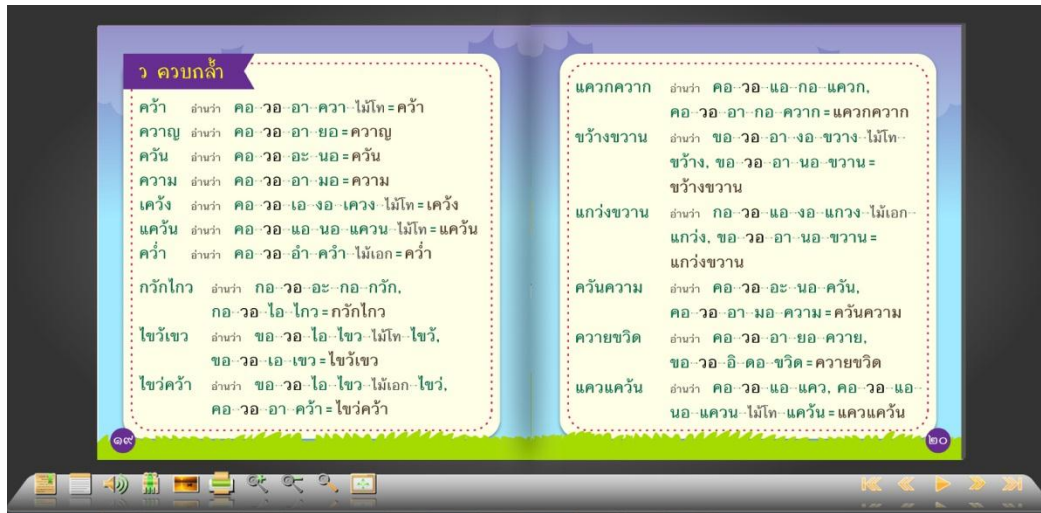 ว ควบกล้ำ
คว้า อ่านว่า คอ--วอ--อา--ควา--ไม้โท = คว้า
ควาญ อ่านว่า คอ--วอ--อา--ยอ = ควาญ
ควัน อ่านว่า คอ--วอ--อะ--นอ = ควัน
ความ อ่านว่า คอ--วอ--อา--มอ = ความ
เคว้ง อ่านว่า คอ--วอ--เอ--งอ--เควง--ไม้โท = เคว้ง
แคว้น อ่านว่า คอ--วอ--แอ--นอ--แควน--ไม้โท = แคว้น
คว่ำ อ่านว่า คอ--วอ--อำ--ควำ--ไม้เอก = คว่ำ
กวักไกว อ่านว่า กอ--วอ--อะ--กอ--กวัก,
กอ--วอ--ไอ--ไกว = กวักไกว
ไขว้เขว อ่านว่า ขอ--วอ--ไอ--ไขว--ไม้โท--ไขว้,
ขอ--วอ--เอ--เขว = ไขว้เขว
ไขว่คว้า อ่านว่า ขอ--วอ--ไอ--ไขว--ไม้เอก--ไขว่,
คอ--วอ--อา--คว้า = ไขว่คว้า
๑๙
แควกควาก อ่านว่า คอ--วอ--แอ--กอ--แควก,
คอ--วอ--อา--กอ--ควาก = แควกควาก
ขว้างขวาน อ่านว่า ขอ--วอ--อา--งอ--ขวาง--ไม้โท--
ขว้าง, ขอ--วอ--อา--นอ--ขวาน =
ขว้างขวาน
แกว่งขวาน อ่านว่า กอ--วอ--แอ--งอ--แกวง--ไม้เอก--
แกว่ง, ขอ--วอ--อา--นอ--ขวาน =
แกว่งขวาน
ควันความ อ่านว่า คอ--วอ--อะ--นอ--ควัน,
คอ--วอ--อา--มอ--ความ = ควันความ
ควายขวิด อ่านว่า คอ--วอ--อา--ยอ--ควาย,
ขอ--วอ--อิ--ดอ--ขวิด = ควายขวิด
แควแคว้น อ่านว่า คอ--วอ--แอ--แคว, คอ--วอ--แอ--
นอ--แควน--ไม้โท--แคว้น = แควแคว้น
๒๐